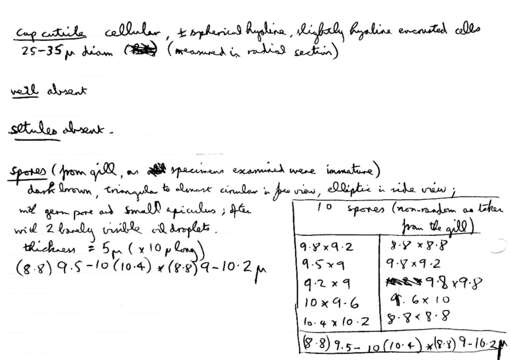 cap cuticle cellular, ± spherical hyaline, slightly hyaline encrusted cells
25-35μ diam (measured in radial section)
veil absent
setules absent.
spores (from gill, as specimens examined were immature)
dark brown, triangular to almost circular in face view, elliptic in side view;
with germ pore and small apiculus; often
with 2 barely visible oil droplets.
thickness = 5μ (×10μ long)
(8.8) 9.5-10 (10.4) × (8.8) 9-10.2 μ
10 spores (non-random as taken
from the gill)
9.8 × 9.2 8.8 × 8.8
9.5 × 9 9.8 × 9.2
9.2 × 9 9.8 × 9.8
10 × 9.6 9.6 × 10
10.4 × 10.2 8.8 × 8.8
(8.8) 9.5-10 (10.4) × (8.8) 9-10.2 μ